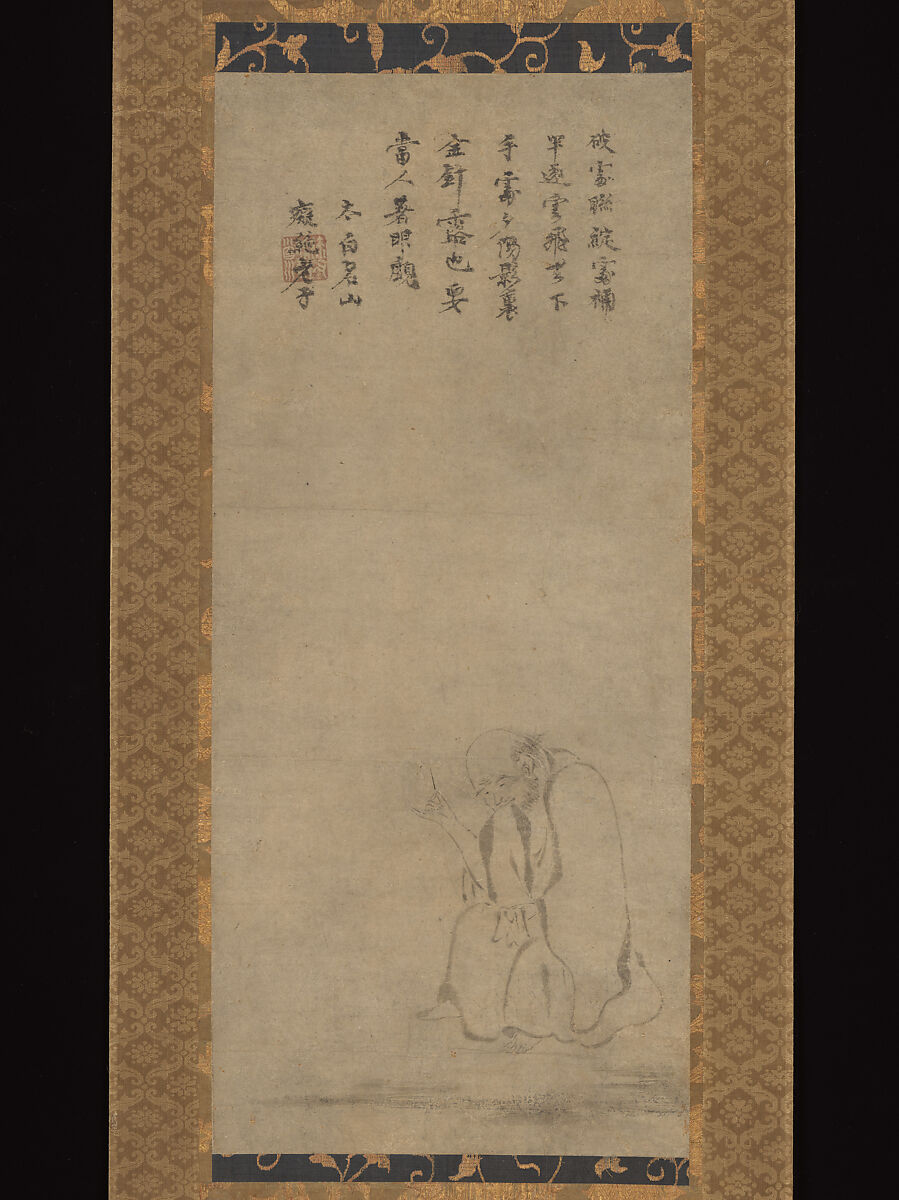 破處聯綻處補
逐雲飛無下
手處夕陽影裏
金針露也要
當人著眼覷
太白名山
癡絕老子